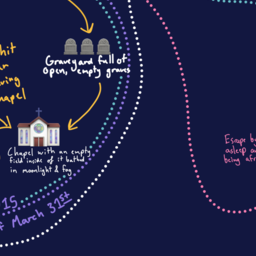 hit
Graveyard full of
open, empty graves
chapel
Chapel with an empty
field inside of it bathed
in moonlight & fog
15
of March 31st
Escape by
asleep a
being a